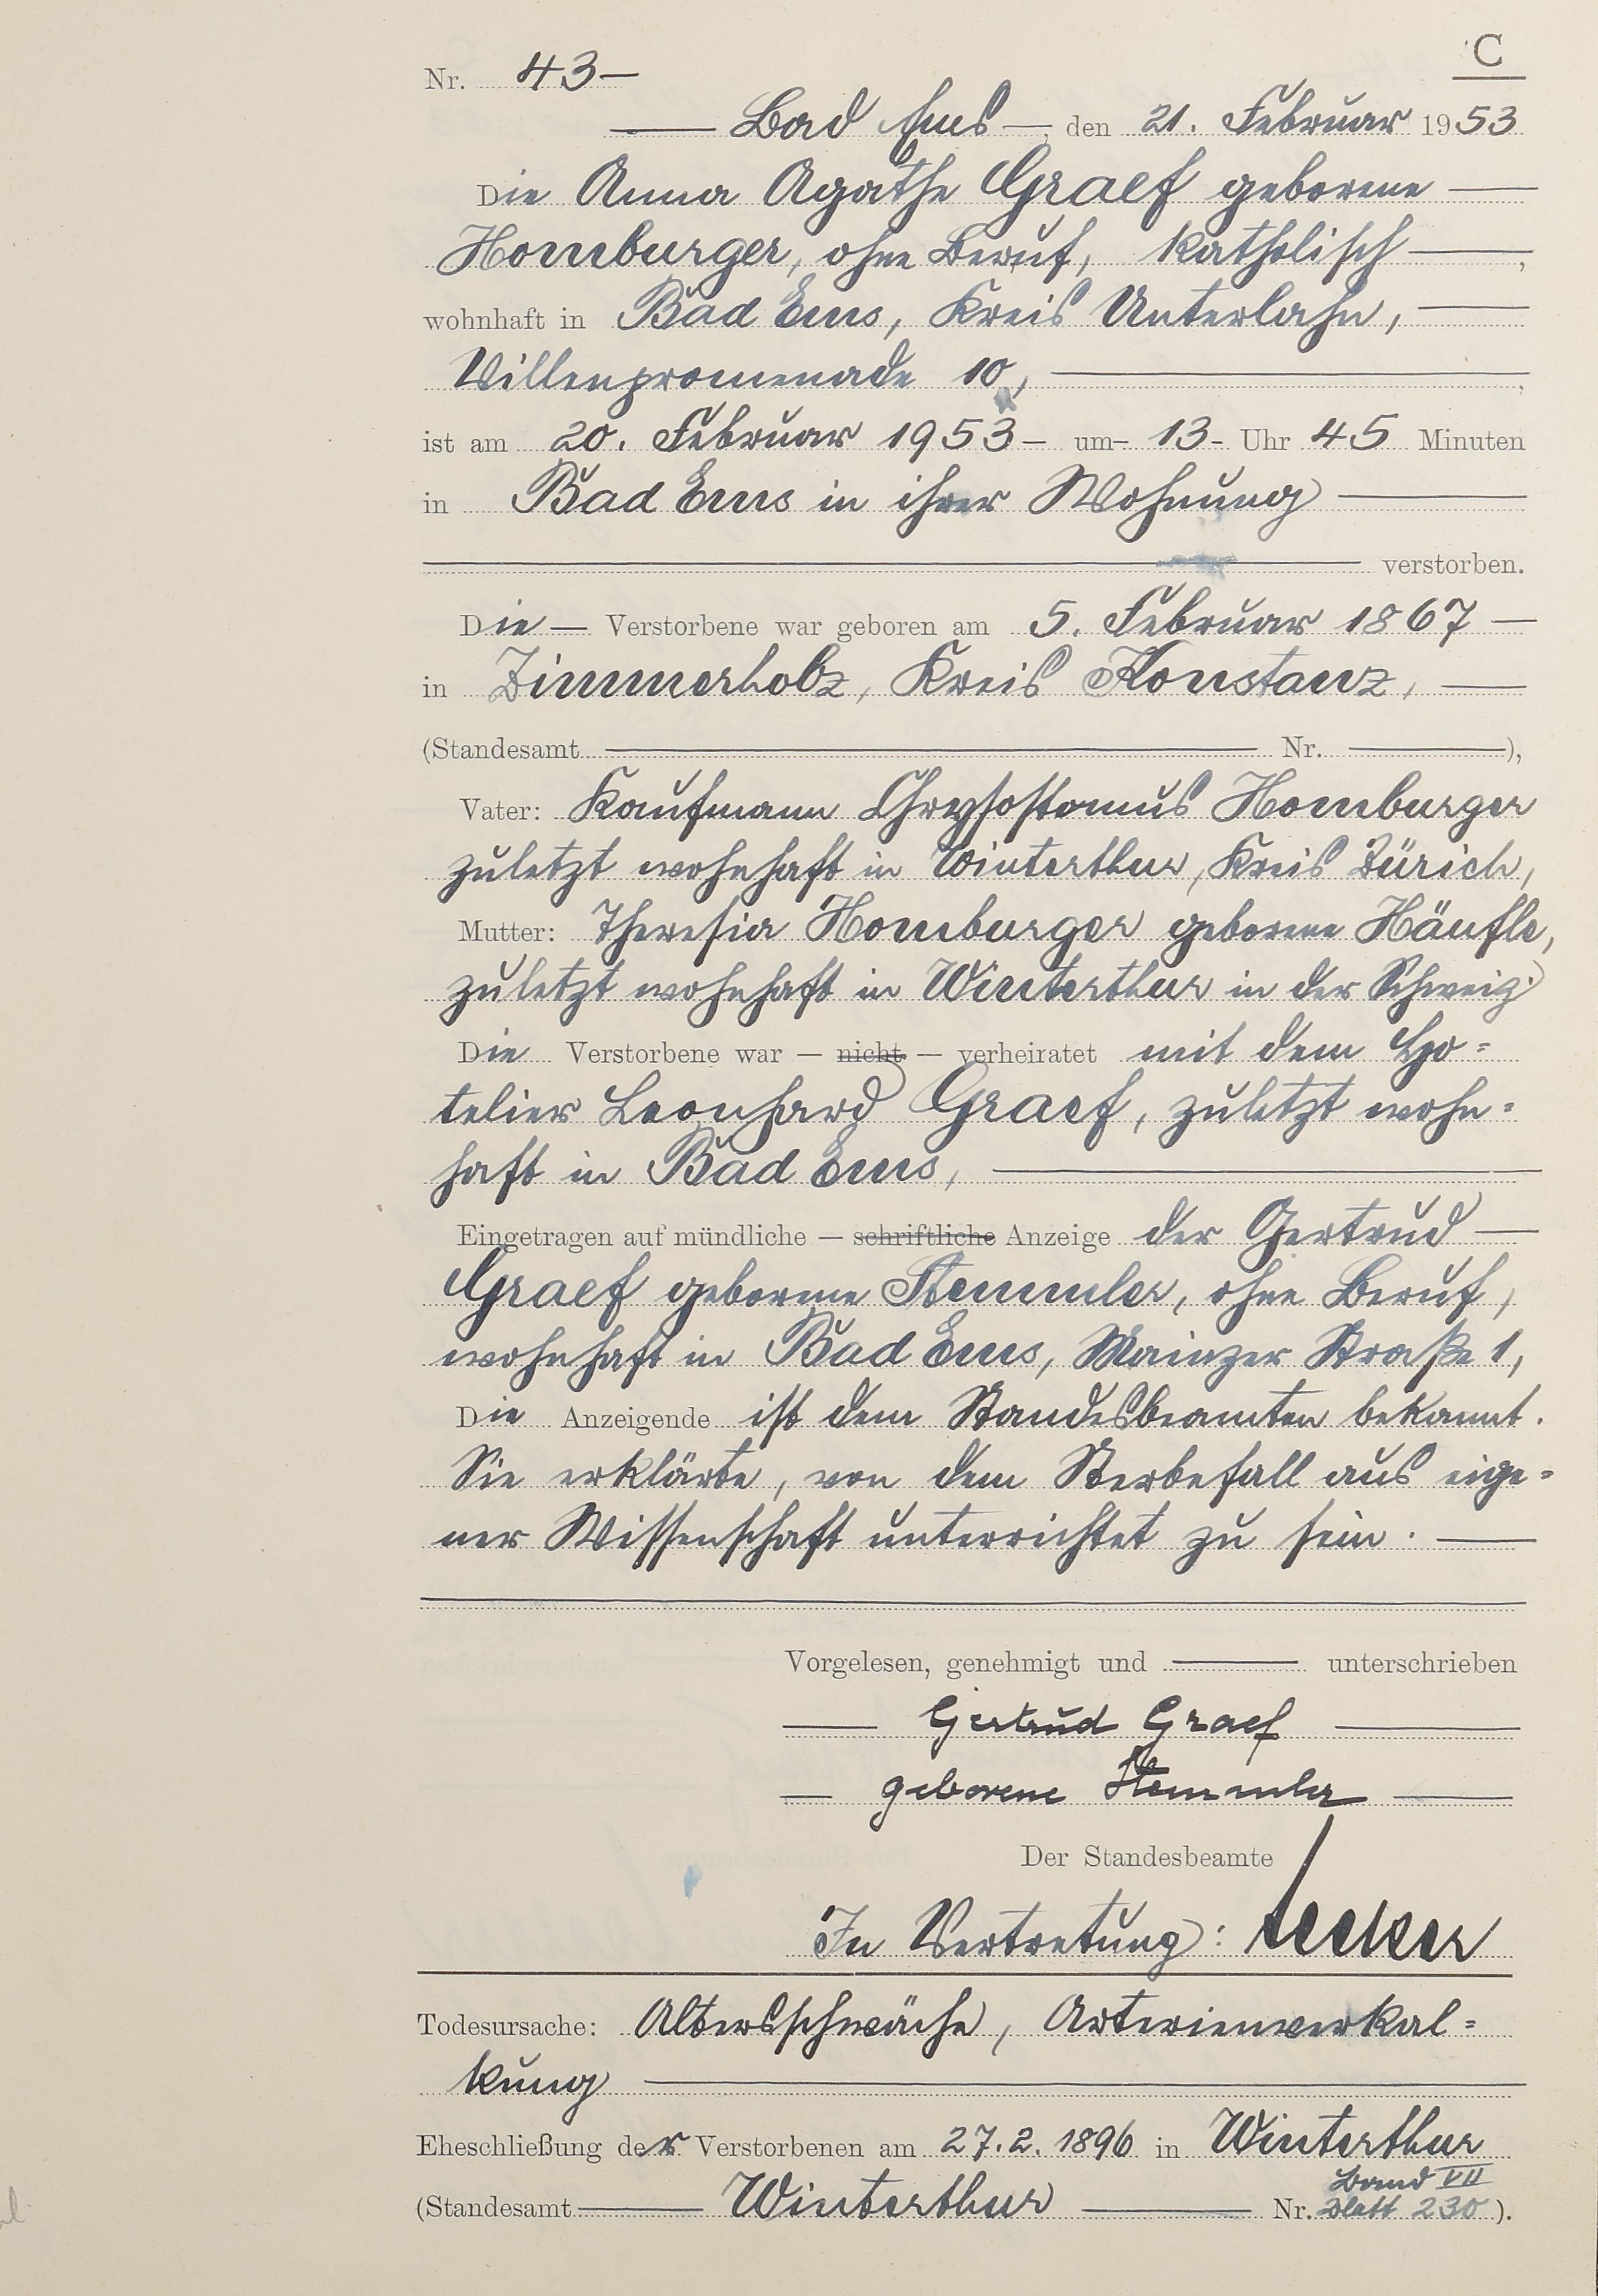 C
Nr. 43-
— Bad Ems —, den 21. Februar 1953
Die Anna Agathe Graef geborene —
Homburger, ohne Beruf, katholisch —,
wohnhaft in Bad Ems, Kreis Unterlahn, —
Villenpromenade 10, —,
ist am 20. Februar 1953 — um — 13 - Uhr 45 Minuten
in Bad Ems in ihrer Wohnung —
— verstorben.
Die — Verstorbene war geboren am 5. Februar 1867 —
in Zimmerholz, Kreis Konstanz, —
(Standesamt — Nr. —),
Vater: Kaufmann Chrysostomus Homburger
zuletzt wohnhaft in Winterthur, Kreis Zürich,
Mutter: Theresia Homburger geborene Häufle,
zuletzt wohnhaft in Winterthur in der Schweiz.
Die Verstorbene war — nicht — verheiratet mit dem Ho=
telier Leonhard Graef, zuletzt wohn=
haft in Bad Ems, —
Eingetragen auf mündliche — schriftliche Anzeige der Gertrud —
Graef geborene Stemmler, ohne Beruf,
wohnhaft in Bad Ems, Mainzer Straße 1,
Die Anzeigende ist dem Standesbeamten bekannt.
Sie erklärte, von dem Sterbefall aus eige=
ner Wissenschaft unterrichtet zu sein. —
Vorgelesen, genehmigt und — unterschrieben
— Gertrud Graef —
— geborene Stemmler —
Der Standesbeamte
In Vertretung:
Todesursache: Altersschwäche, Arterienverkal=
kung —
Eheschließung der Verstorbenen am 27.2.1896 in Winterthur
Band VII
(Standesamt — Winterthur — Nr. Blatt 230).